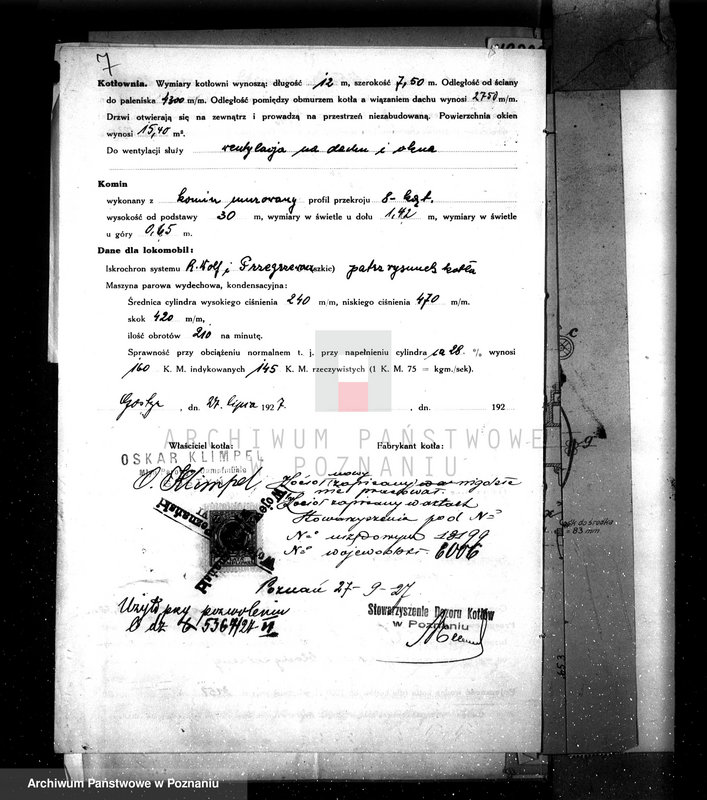 7
Kotłownia. Wymiary kotłowni wynoszą: długość 12 m, szerokość 7,50 m. Odległość od ściany
do paleniska 4300 m/m. Odległość pomiędzy obmurzem kotła a wiązaniem dachu wynosi 2750 m/m.
Drzwi otwierają się na zewnątrz i prowadzą na przestrzeń niezabudowaną. Powierzchnia okien
wynosi 15,40 m².
Do wentylacji służy wentylacja na dachu i okna
Komin
wykonany z komin murowany profil przekroju 8-kąt.
wysokość od podstawy 30 m, wymiary w świetle u dołu 1,42 m, wymiary w świetle
u góry 0,65 m.
Dane dla lokomobil:
Iskrochron systemu R. Wolf i patrz rysunek kotła
Maszyna parowa wydechowa, kondensacyjna:
Średnica cylindra wysokiego ciśnienia 240 m/m, niskiego ciśnienia 470 m/m.
skok 420 m/m,
ilość obrotów 210 na minutę.
Sprawność przy obciążeniu normalnem t. j. przy napełnieniu cylindra ca 28 % wynosi
160 K. M. indykowanych 145 K. M. rzeczywistych (1 K. M. 75 = kgm./sek).
Gostyń, dn. 27. lipca 1927. , dn. 192
Właściciel kotła: Fabrykant kotła:
ARCHIWUM PAŃSTWOWE
W POZNANIU
OSKAR KLIMPEL
O. Klimpel
Kocioł nowy zapisany
nie pracował.
Kocioł zapisany w aktach
Stowarzyszenia pod №
№ urzędowym 18199
№ wojewódzki 6006
Poznań 27-9-27
Użyto przy pozwoleniu
Stowarzyszenie Dozoru Kotłów
w Poznaniu
c
g
= 83 mm
653
Archiwum Państwowe w Poznaniu